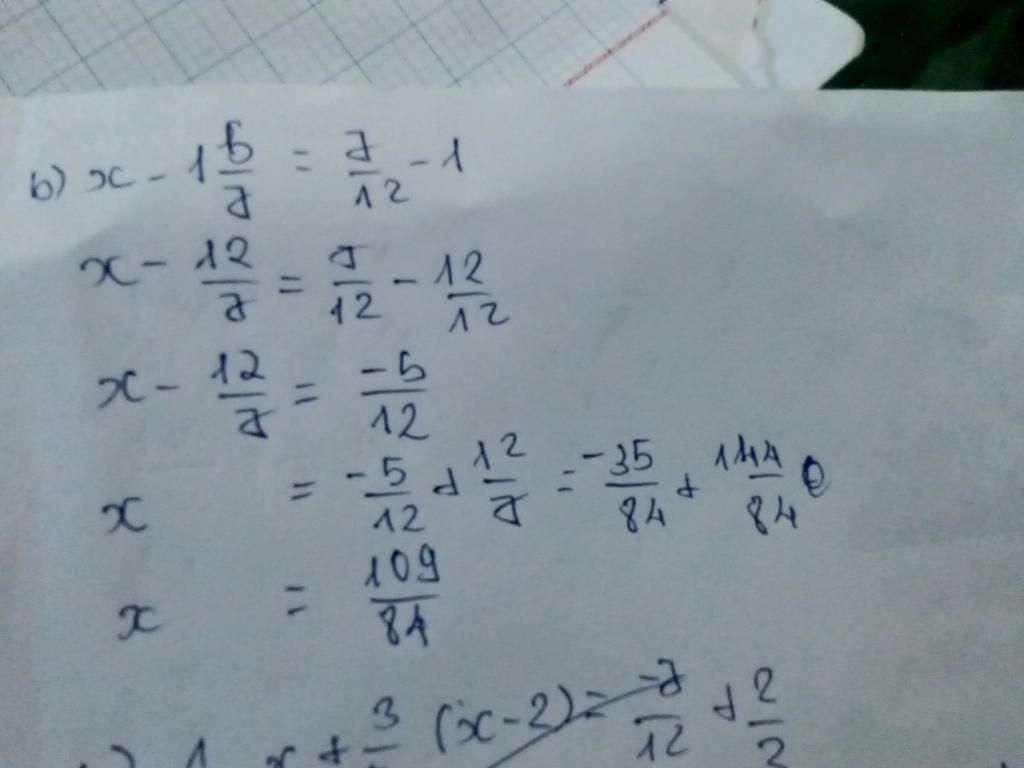 b) x - 1 5/7 = 7/12 - 1
x - 12/7 = 7/12 - 12/12
x - 12/7 = -5/12
x = -5/12 + 12/7 = -35/84 + 144/84
x = 109/84
x + 3 (x - 2) = -7/12 + 2/2